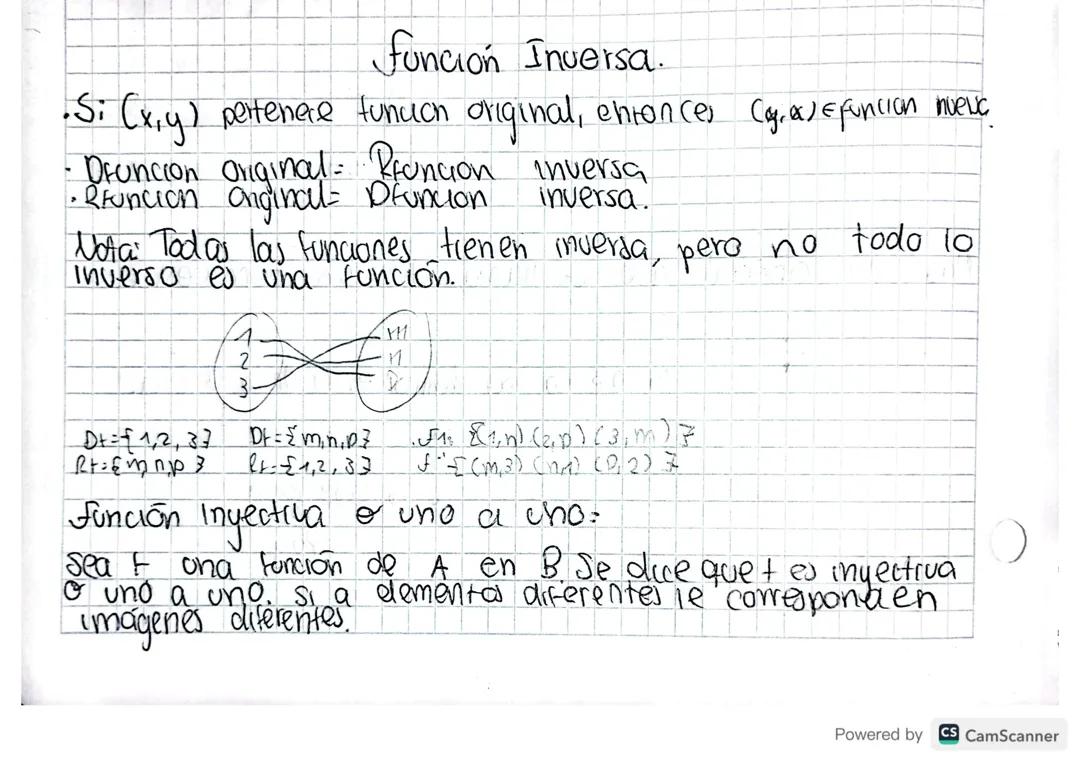 función Inversa.
.Si (x,y) pertenece función original, entonces (y,x) ∈ función nueva
· Dfuncion original = Rfuncion inversa
· Rfuncion original = Dfuncion inversa.
Nota: Todas las funciones tienen inversa, pero no todo lo
inverso es una función.
1 m
2 n
3 p
Df={1,2,3} Df={m,n,p} f1: {(1,n) (2,p) (3,m)}
Rf={m,n,p} Rf={1,2,3} f⁻¹ {(m,3) (n,1) (p,2)}
función Inyectiva o uno a uno:
Sea f una función de A en B. Se dice que f es inyectiva
o uno a uno. si a elementos diferentes le corresponden
imágenes diferentes.
Powered by CS CamScanner